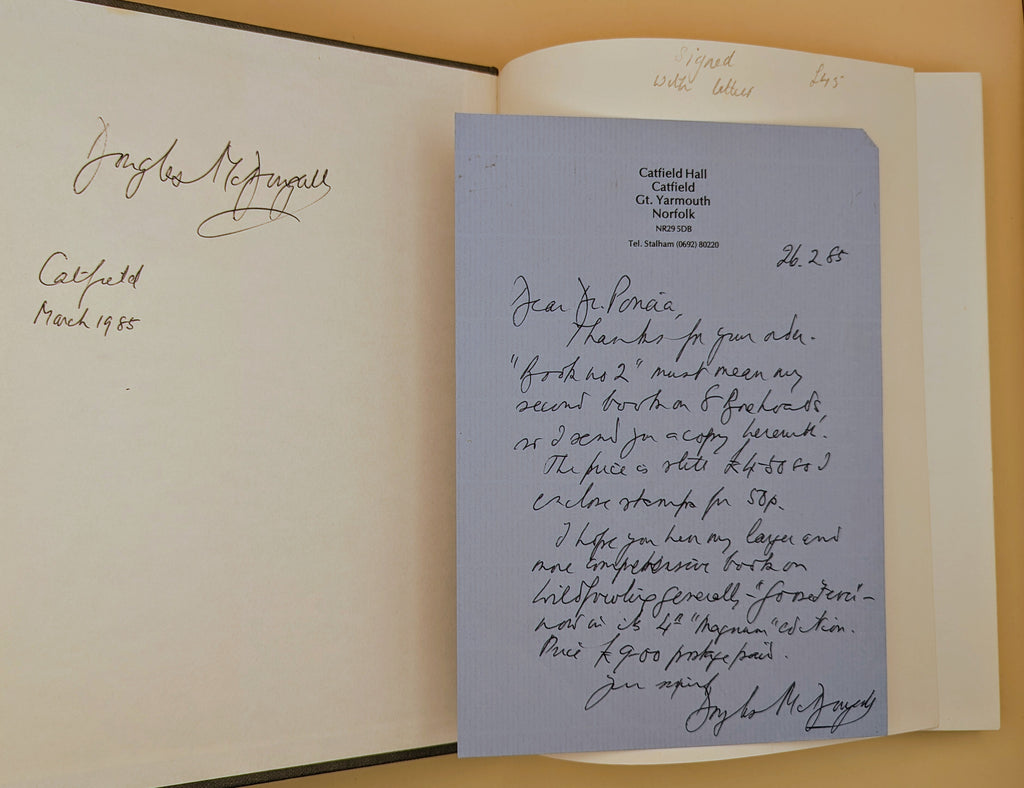 Douglas McDougall
Catfield
March 1985
Signed
with letter £45
Catfield Hall
Catfield
Gt. Yarmouth
Norfolk
NR29 5DB
Tel. Stalham (0692) 80220
26. 2 85
Dear Dr. Poncia,
Thanks for your order.
"Book no 2" must mean my
second book on 8 Bore
so I send you a copy herewith.
The price is still £4-50 so I
enclose stamps for 50p.
I hope you have my larger and
more comprehensive book on
wildfowling generally - "Goosefever" -
now in its 4th "Magnum" edition.
Price £9-00 postage paid.
Douglas McDougall